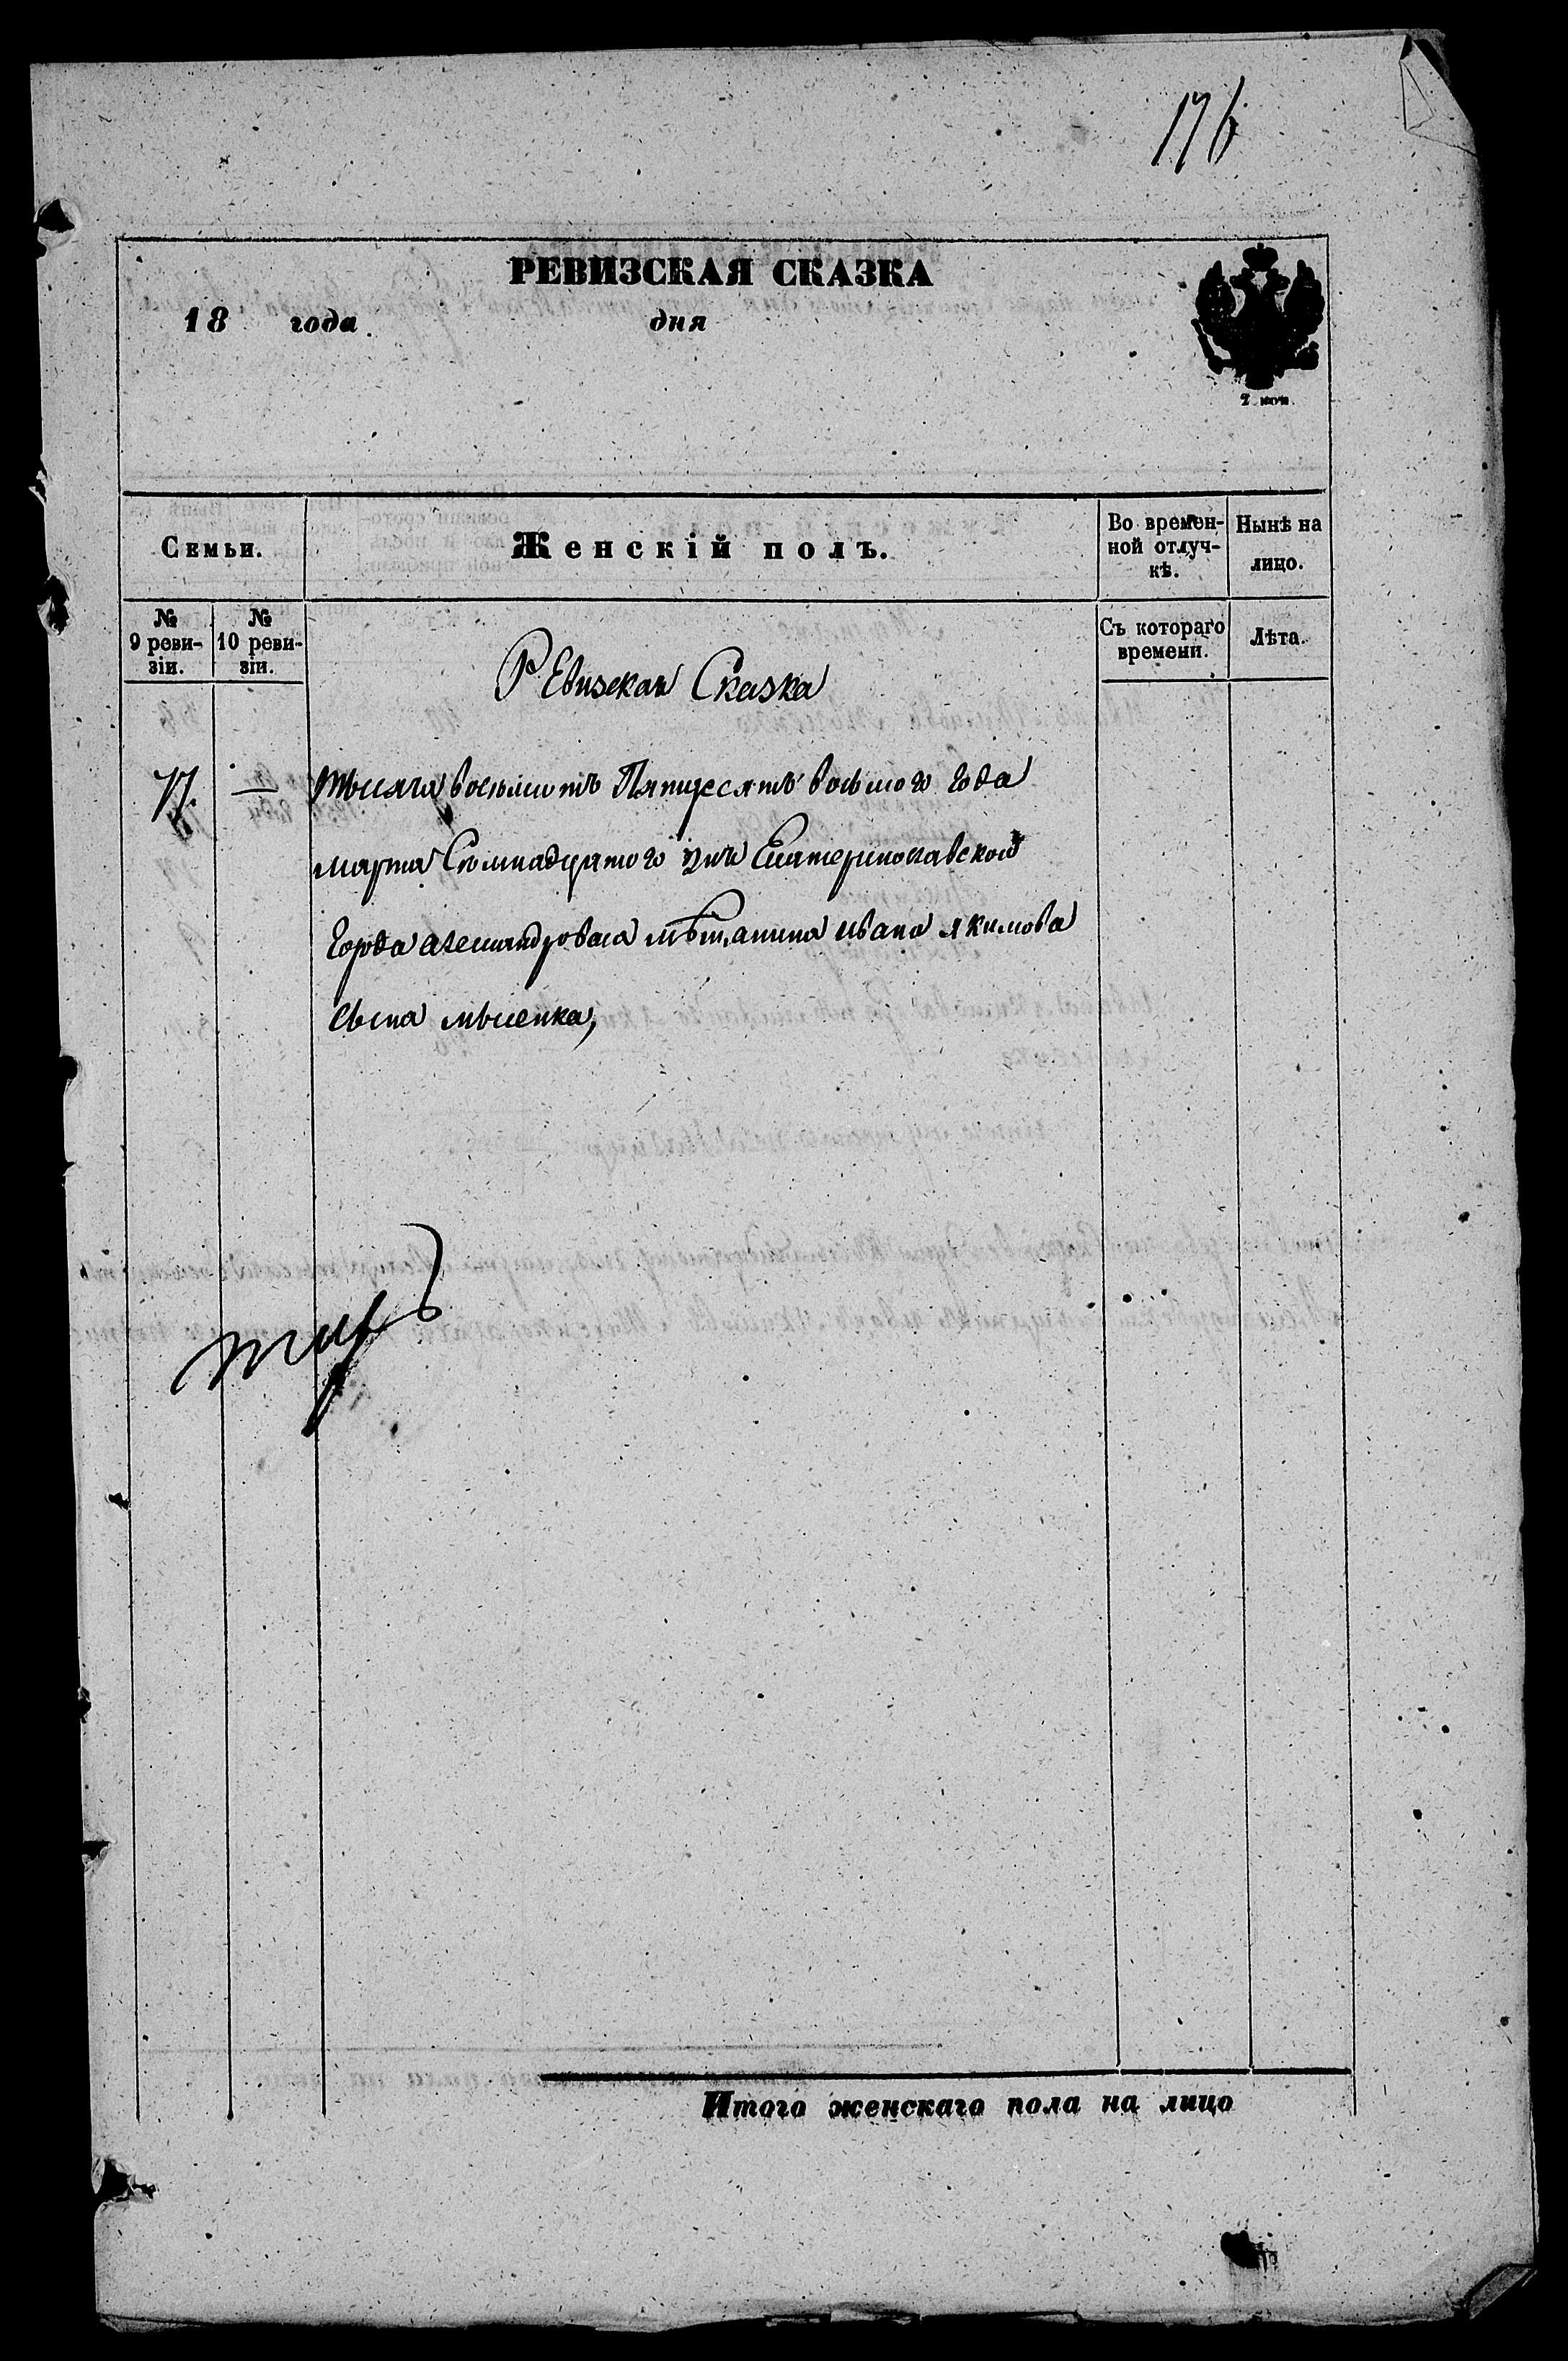 176
РЕВИЗСКАЯ СКАЗКА
18 года дня
2 коп.
Семьи.
Женскій полъ.
Во времен-
ной отлуч-
кѣ.
Нынѣ на
лицо.
№
9 реви-
зіи.
№
10 реви-
зіи.
Съ котораго
времени.
Лѣта.
Ревизская Сказка
тысяча восьмсотъ Пятдесятъ восьмого Года
марта Семнадцатого дня Екатеринославской
Города александровска мѣщанина ивана якимова
сына
Итого женскаго пола на лицо